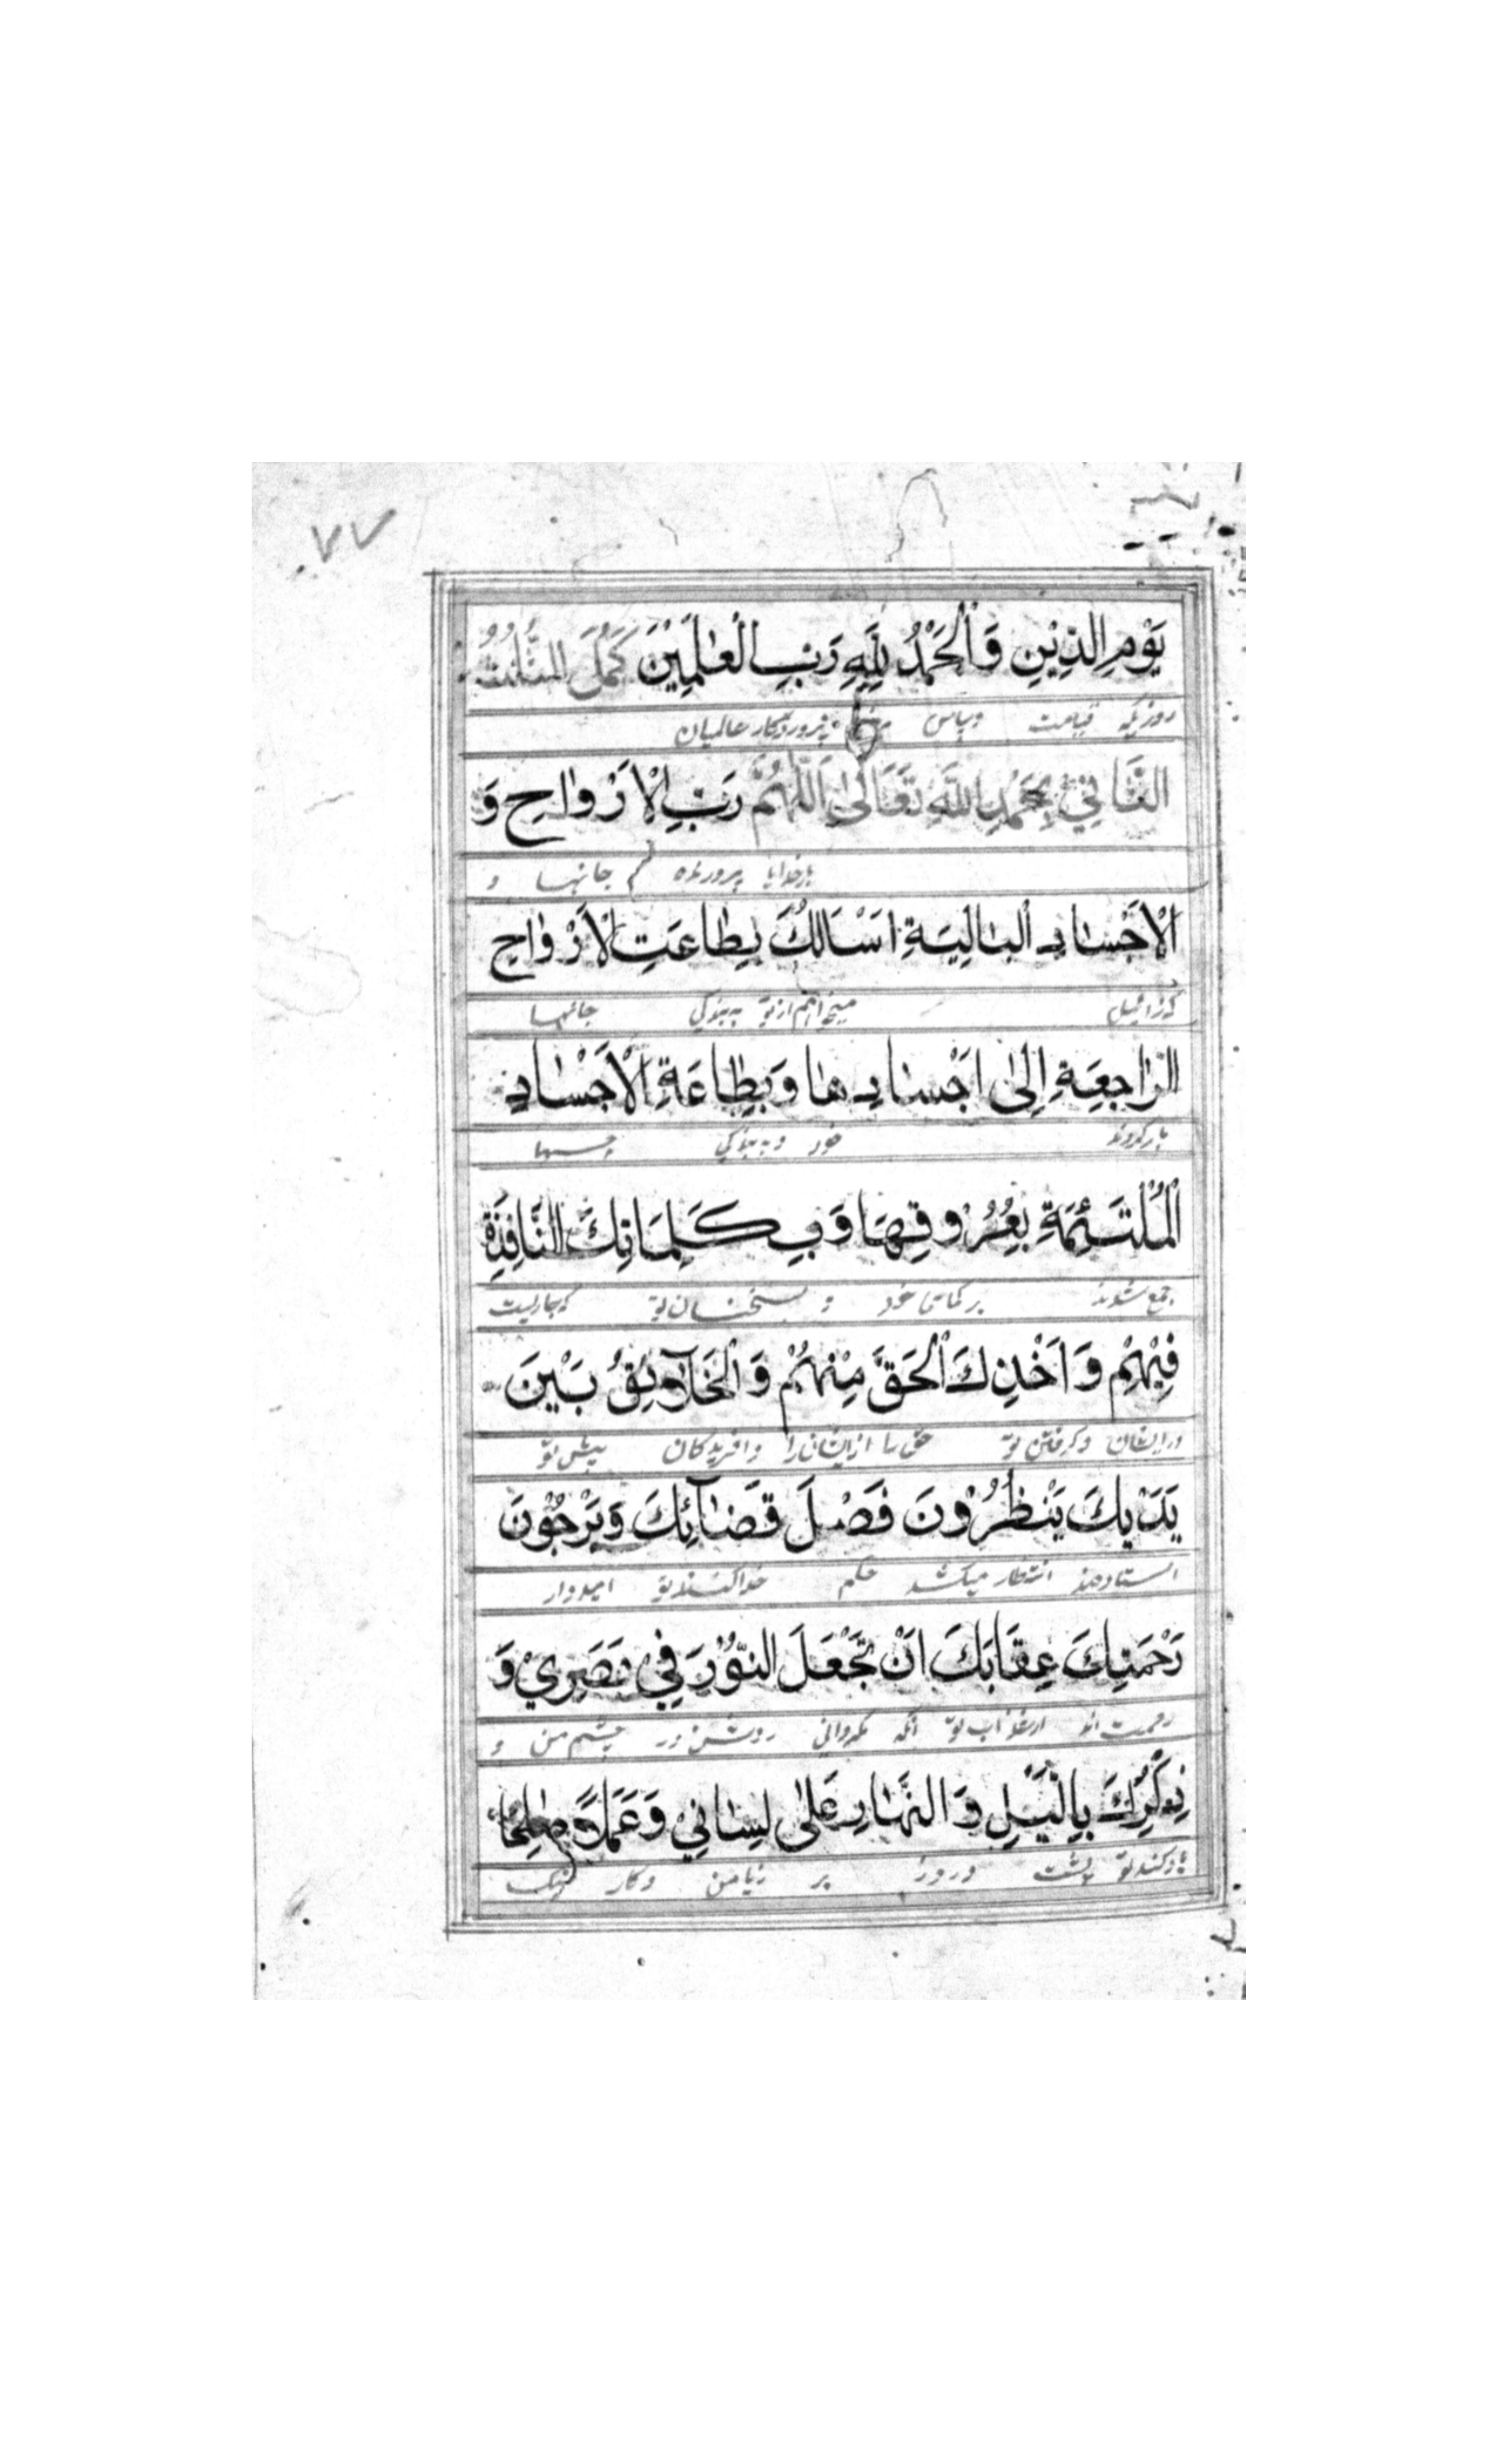 ٧٧
يَوْمِ الدِّيْنِ وَالْحَمْدُ لِلّٰهِ رَبِّ الْعٰلَمِيْنَ كَمُلَ الثُّلُثُ
روزیکه قیامت وسپاس پروردکار عالمیان
الثَّانِيْ بِحَمْدِ اللّٰهِ تَعَالٰى اَللّٰهُمَّ رَبَّ الْاَرْوَاحِ وَ
بارخدایا پرورنده جانها و
الْاَجْسَادِ الْبَالِيَةِ اَسْاَلُكَ بِطَاعَتِ الْاَرْوَاحِ
میخواهم ازتو به بندکی جانها
الرَّاجِعَةِ اِلٰى اَجْسَادِهَا وَبِطَاعَةِ الْاَجْسَادِ
بازکردند خود و به بندکی جسمها
الْمُلْتَئِمَةِ بِعُرُوْقِهَا وَبِكَلِمَاتِكَ النَّافِذَةِ
جمع شوند برکهای خود و بسخنان تو که جاریست
فِيْهِمْ وَاَخْذِكَ الْحَقَّ مِنْهُمْ وَالْخَلَآئِقُ بَيْنَ
درایشان وکرفتن تو حق را ازایشان را وافریدکان پیش تو
يَدَيْكَ يَنْظُرُوْنَ فَصْلَ قَضَآئِكَ وَيَرْجُوْنَ
ایستادهند انتظار میکشند حکم امیدوار
رَحْمَتِكَ عِقَابَكَ اَنْ تَجْعَلَ النُّوْرَ فِيْ بَصَرِيْ وَ
رحمت اند ازعذاب تو انکه بکردانی روشنی در چشم من و
ذِكْرِكَ بِالَّيْلِ وَالنَّهَارِ عَلٰى لِسَانِيْ وَعَمَلًا صَالِحًا
یادکند تو بشب وروز بر زبا من وکار نیک